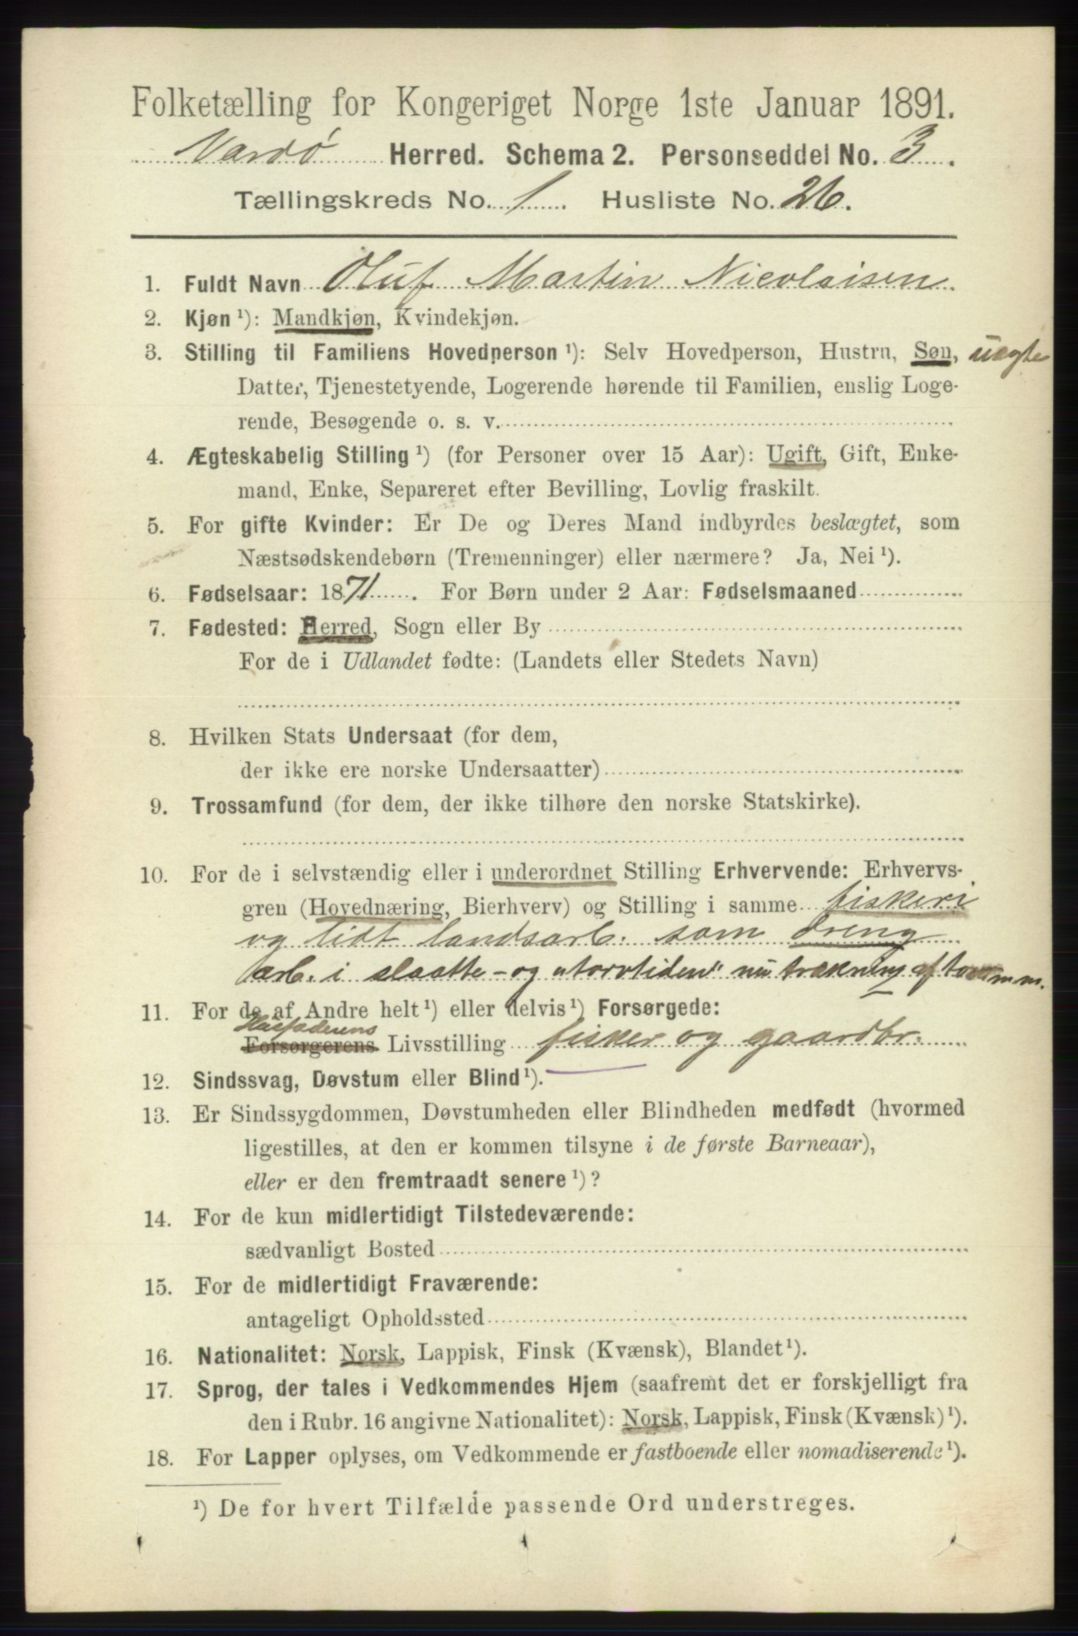 Folketælling for Kongeriget Norge 1ste Januar 1891.
Vardø Herred. Schema 2. Personseddel No. 3.
Tællingskreds No. 1. Husliste No. 26.
1. Fuldt Navn Oluf Martin Nicolaisen.
2. Kjøn ¹): Mandkjøn, Kvindekjøn.
3. Stilling til Familiens Hovedperson ¹): Selv Hovedperson, Hustru, Søn, uægte
Datter, Tjenestetyende, Logerende hørende til Familien, enslig Loge-
rende, Besøgende o. s. v.
4. Ægteskabelig Stilling ¹) (for Personer over 15 Aar): Ugift, Gift, Enke-
mand, Enke, Separeret efter Bevilling, Lovlig fraskilt.
5. For gifte Kvinder: Er De og Deres Mand indbyrdes beslægtet, som
Næstsødskendebørn (Tremenninger) eller nærmere? Ja, Nei ¹).
6. Fødselsaar: 1871. For Børn under 2 Aar: Fødselsmaaned
7. Fødested: Herred, Sogn eller By
For de i Udlandet fødte: (Landets eller Stedets Navn)
8. Hvilken Stats Undersaat (for dem,
der ikke ere norske Undersaatter)
9. Trossamfund (for dem, der ikke tilhøre den norske Statskirke).
10. For de i selvstændig eller i underordnet Stilling Erhvervende: Erhvervs-
gren (Hovednæring, Bierhverv) og Stilling i samme fiskeri
og lidt landsarb. som dreng
arb. i slaatte- og "torvtiden" nu trækning af
11. For de af Andre helt ¹) eller delvis ¹) Forsørgede:
Husfaderens
Forsørgerens Livsstilling fisker og gaardbr.
12. Sindssvag, Døvstum eller Blind ¹).
13. Er Sindssygdommen, Døvstumheden eller Blindheden medfødt (hvormed
ligestilles, at den er kommen tilsyne i de første Barneaar),
eller er den fremtraadt senere ¹)?
14. For de kun midlertidigt Tilstedeværende:
sædvanligt Bosted
15. For de midlertidigt Fraværende:
antageligt Opholdssted
16. Nationalitet: Norsk, Lappisk, Finsk (Kvænsk), Blandet ¹).
17. Sprog, der tales i Vedkommendes Hjem (saafremt det er forskjelligt fra
den i Rubr. 16 angivne Nationalitet): Norsk, Lappisk, Finsk (Kvænsk) ¹).
18. For Lapper oplyses, om Vedkommende er fastboende eller nomadiserende ¹).
¹) De for hvert Tilfælde passende Ord understreges.